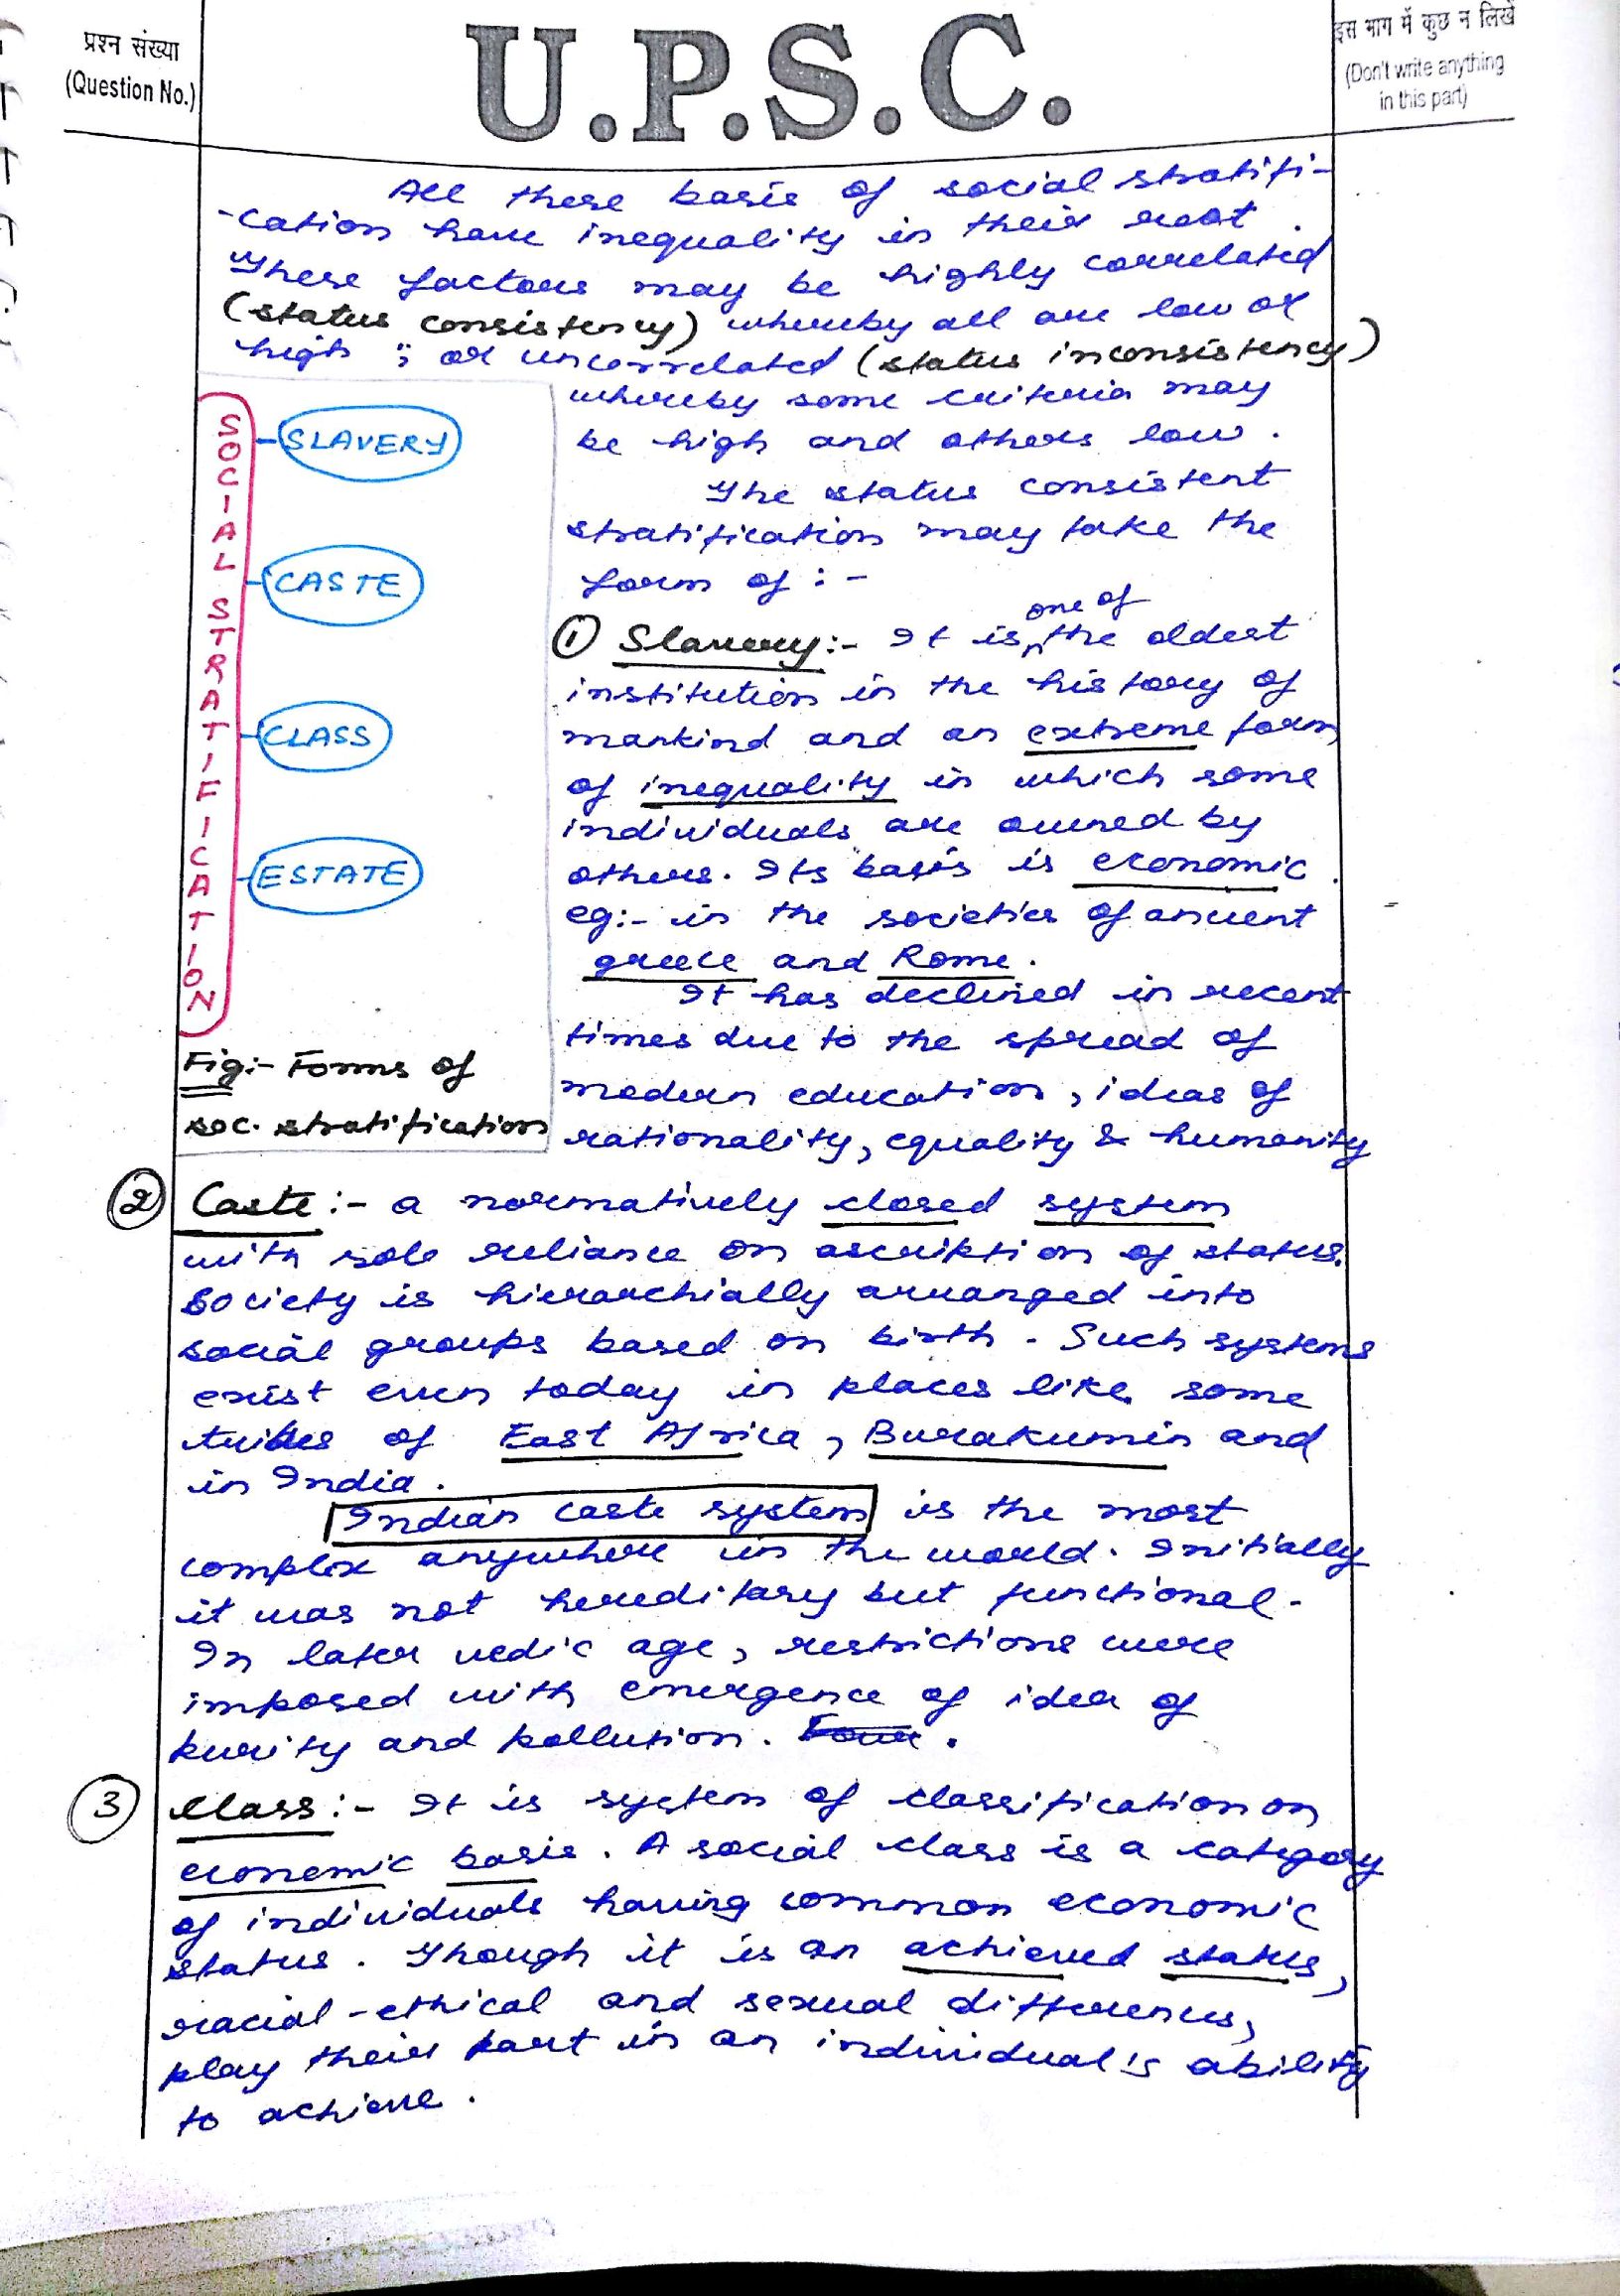 प्रश्न संख्या
(Question No.)
U.P.S.C.
इस भाग में कुछ न लिखें
(Don't write anything
in this part)
All these basis of social stratifi-
-cation have inequality in their root.
These factors may be highly correlated
(status consistency) whereby all are low or
high ; or uncorrelated (status inconsistency)
whereby some criteria may
be high and others low.
The status consistent
stratification may take the
form of :-
① Slavery:- It is one of the oldest
institution in the history of
mankind and an extreme form
of inequality in which some
individuals are owned by
others. Its basis is economic.
eg:- in the societies of ancient
greece and Rome.
It has declined in recent
times due to the spread of
modern education, ideas of
rationality, equality & humanity
SOCIAL STRATIFICATION
SLAVERY
CASTE
CLASS
ESTATE
Fig:- Forms of
soc. stratification
② Caste :- a normatively closed system
with sole reliance on ascription of status.
Society is hierarchially arranged into
social groups based on birth. Such systems
exist even today in places like some
tribes of East Africa, Burakumin and
in India.
Indian caste system is the most
complex anywhere in the world. Initially
it was not hereditary but functional.
In later vedic age, restrictions were
imposed with emergence of idea of
purity and pollution.
③ Class :- It is system of classification on
economic basis. A social class is a category
of individuals having common economic
status. Though it is an achieved status,
racial-ethical and sexual differences,
play their part in an individual's ability
to achieve.